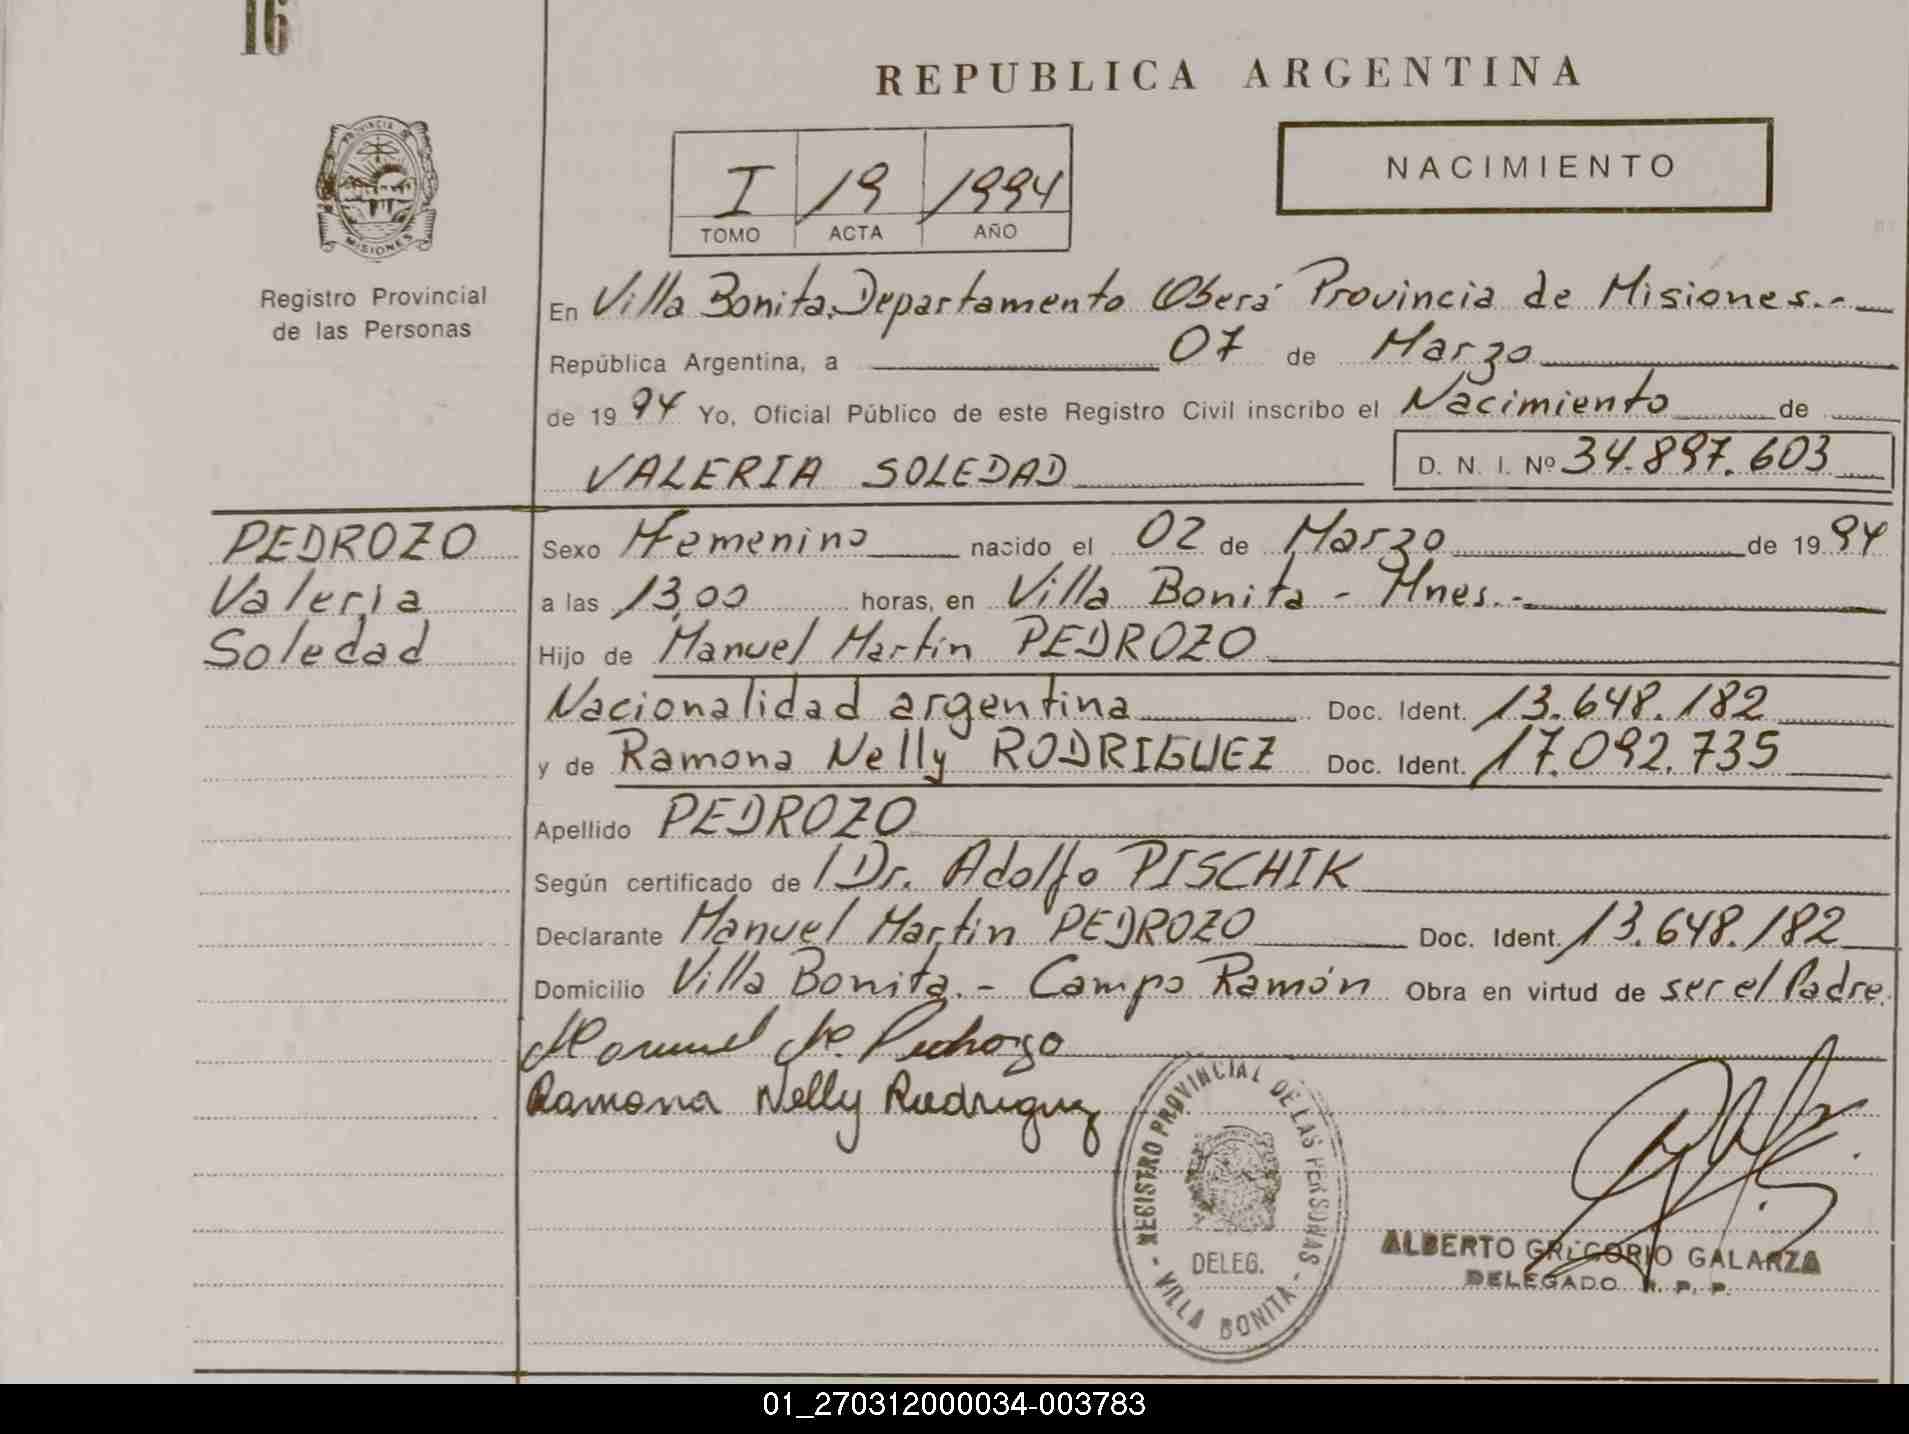 16
REPUBLICA ARGENTINA
PROVINCIA DE
MISIONES
Registro Provincial
de las Personas
I 19 1994
TOMO ACTA AÑO
NACIMIENTO
En Villa Bonita, Departamento Oberá Provincia de Misiones.-
República Argentina, a 07 de Marzo
de 1994 Yo, Oficial Público de este Registro Civil inscribo el Nacimiento de
VALERIA SOLEDAD D. N. I. Nº 34.897.603
PEDROZO
Valeria
Soledad
Sexo Femenino nacido el 02 de Marzo de 1994
a las 13,00 horas, en Villa Bonita - Mnes.-
Hijo de Manuel Martin PEDROZO
Nacionalidad argentina Doc. Ident. 13.648.182
y de Ramona Nelly RODRIGUEZ Doc. Ident. 17.092.735
Apellido PEDROZO
Según certificado de Dr. Adolfo PISCHIK
Declarante Manuel Martin PEDROZO Doc. Ident. 13.648.182
Domicilio Villa Bonita.- Campo Ramón Obra en virtud de ser el Padre.
Manuel M. Pedrozo
Ramona Nelly Rodriguez
REGISTRO PROVINCIAL DE LAS PERSONAS
DELEG.
- VILLA BONITA -
ALBERTO GREGORIO GALARZA
DELEGADO R. P. P.
01_270312000034-003783